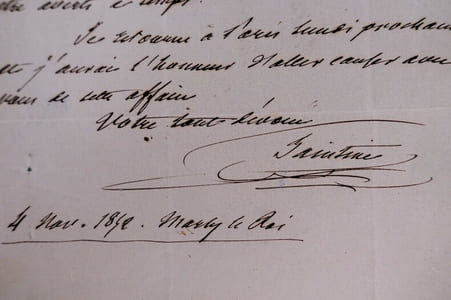 être averti à temps.
Je retourne à Paris lundi prochain
et j'aurai l'honneur d'aller causer avec
vous de cette affaire
Votre tout dévoué
Saintine
4 Nov. 1852. Marly le Roi